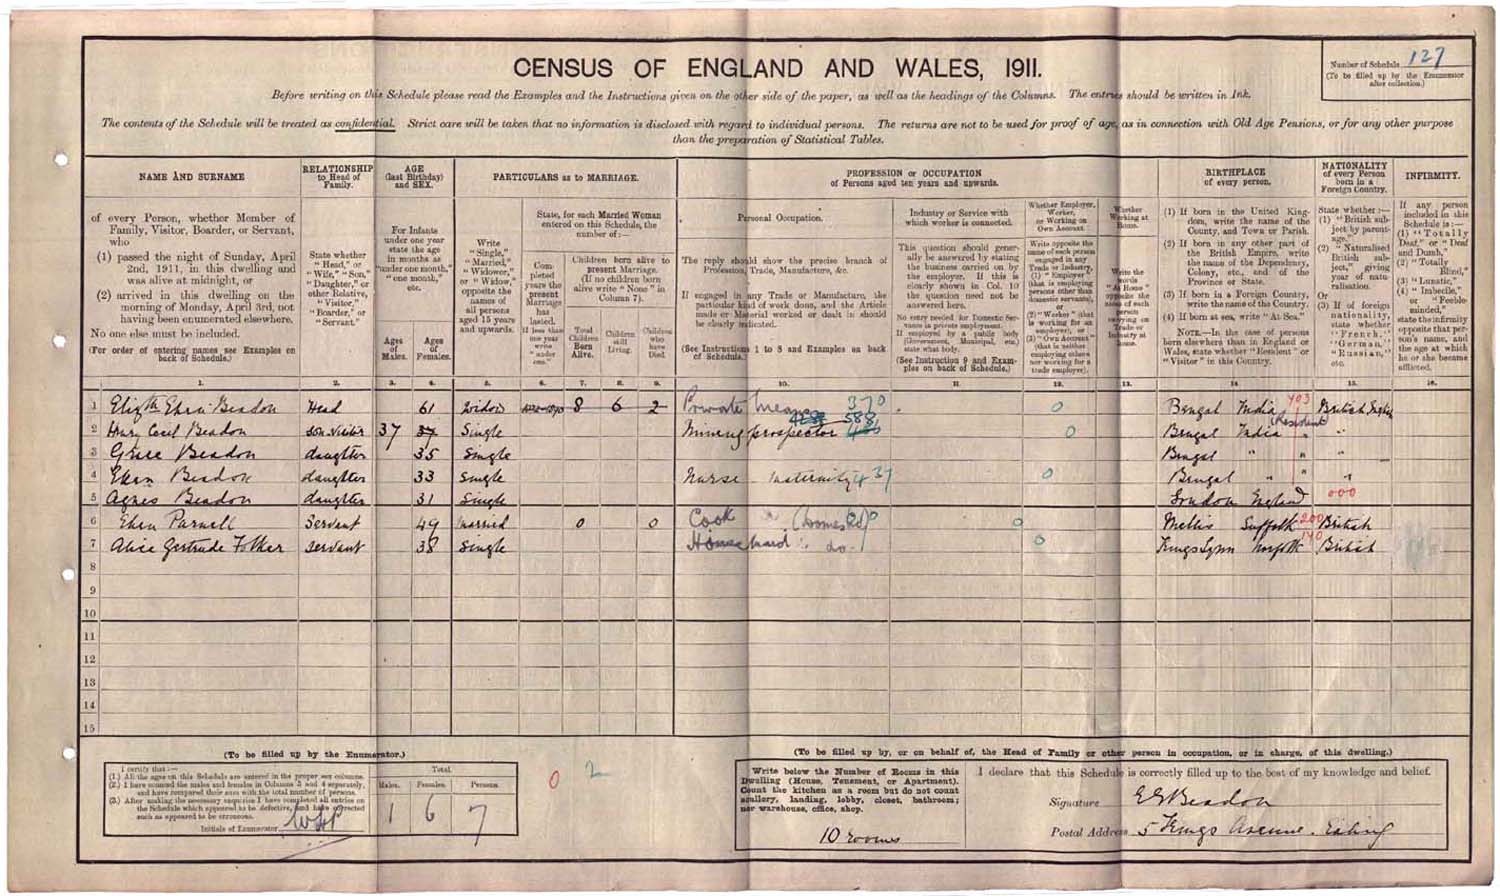 CENSUS OF ENGLAND AND WALES, 1911.
Number of Schedule 127
(To be filled up by the Enumerator
after collection.)
Before writing on this Schedule please read the Examples and the Instructions given on the other side of the paper, as well as the headings of the Columns. The entries should be written in Ink.
The contents of the Schedule will be treated as confidential. Strict care will be taken that no information is disclosed with regard to individual persons. The returns are not to be used for proof of age, as in connection with Old Age Pensions, or for any other purpose
than the preparation of Statistical Tables.
NAME AND SURNAME
of every Person, whether Member of
Family, Visitor, Boarder, or Servant,
who
(1) passed the night of Sunday, April
2nd, 1911, in this dwelling and
was alive at midnight, or
(2) arrived in this dwelling on the
morning of Monday, April 3rd, not
having been enumerated elsewhere.
No one else must be included.
(For order of entering names see Examples on
back of Schedule.)
RELATIONSHIP
to Head of
Family.
State whether
"Head," or
"Wife," "Son,"
"Daughter," or
other Relative,
"Visitor,"
"Boarder," or
"Servant."
AGE
(last Birthday)
and SEX.
For Infants
under one year
state the age
in months as
"under one month,"
"one month,"
etc.
Ages
of
Males.
Ages
of
Females.
PARTICULARS as to MARRIAGE.
Write
"Single,"
"Married,"
"Widower,"
or "Widow,"
opposite the
names of
all persons
aged 15 years
and upwards.
State, for each Married Woman
entered on this Schedule, the
number of:—
Completed
years the
present
Marriage
has
lasted.
If less than
one year
write
"under
one."
Children born alive to
present Marriage.
(If no children born
alive write "None" in
Column 7).
Total
Children
Born
Alive.
Children
still
Living.
Children
who
have
Died.
PROFESSION or OCCUPATION
of Persons aged ten years and upwards.
Personal Occupation.
The reply should show the precise branch of
Profession, Trade, Manufacture, &c.
If engaged in any Trade or Manufacture, the
particular kind of work done, and the Article
made or Material worked or dealt in should
be clearly indicated.
(See Instructions 1 to 8 and Examples on back
of Schedule.)
Industry or Service with
which worker is connected.
This question should generally
be answered by stating
the business carried on by
the employer. If this is
clearly shown in Col. 10
the question need not be
answered here.
No entry needed for Domestic Servants
in private employment.
If employed by a public body
(Government, Municipal, etc.)
state what body.
(See Instruction 9 and Examples
on back of Schedule.)
Whether Employer,
Worker,
or Working on
Own Account.
Write opposite the
name of each person
engaged in any
Trade or Industry,
(1) "Employer"
(that is employing
persons other than
domestic servants),
or
(2) "Worker" (that
is working for an
employer), or
(3) "Own Account"
(that is neither
employing others
nor working for a
trade employer).
Whether
Working at
Home.
Write the
words
"At Home"
opposite the
name of each
person
carrying on
Trade or
Industry at
home.
BIRTHPLACE
of every person.
(1) If born in the United Kingdom,
write the name of the
County, and Town or Parish.
(2) If born in any other part of
the British Empire, write
the name of the Dependency,
Colony, etc., and of the
Province or State.
(3) If born in a Foreign Country,
write the name of the Country.
(4) If born at sea, write "At Sea."
NOTE.—In the case of persons
born elsewhere than in England or
Wales, state whether "Resident" or
"Visitor" in this Country.
NATIONALITY
of every Person
born in a
Foreign Country.
State whether:—
(1) "British subject
by parentage,"
(2) "Naturalised
British subject,"
giving
year of naturalisation.
Or
(3) If of foreign
nationality,
state whether
"French,"
"German,"
"Russian,"
etc.
INFIRMITY.
If any person
included in this
Schedule is:—
(1) "Totally
Deaf," or "Deaf
and Dumb,"
(2) "Totally
Blind,"
(3) "Lunatic,"
(4) "Imbecile,"
or "Feeble-minded,"
state the infirmity
opposite that person's
name, and
the age at which
he or she became
afflicted.
1. 2. 3. 4. 5. 6. 7. 8. 9. 10. 11. 12. 13. 14. 15. 16.
1 Elizth Ellen Beadon Head 61 Widow 8 6 2 Private Means 370 0 Bengal India 403 British
2 Henry Cecil Beadon Son Visitor 37 37 Single Mining prospector 588 0 Bengal India (Resident) "
3 Grace Beadon daughter 35 Single Bengal " " "
4 Ellen Beadon daughter 33 Single Nurse Maternity 437 0 Bengal " " "
5 Agnes Beadon daughter 31 Single London England 000
6 Ellen Parnell Servant 49 Married 0 0 Cook (Domestic) 0 Mellis Suffolk 200 British
7 Alice Gertrude Folker Servant 38 Single Housemaid do. 0 Kings Lynn Norfolk 190 British
8
9
10
11
12
13
14
15
(To be filled up by the Enumerator.)
I certify that:—
(1.) All the ages on this Schedule are entered in the proper sex columns.
(2.) I have counted the males and females in Columns 3 and 4 separately,
and have compared their sum with the total number of persons.
(3.) After making the necessary enquiries I have completed all entries on
the Schedule which appeared to be defective, and have corrected
such as appeared to be erroneous.
Initials of Enumerator
Total.
Males. Females. Persons.
1 6 7
0 2
(To be filled up by, or on behalf of, the Head of Family or other person in occupation, or in charge, of this dwelling.)
Write below the Number of Rooms in this
Dwelling (House, Tenement, or Apartment).
Count the kitchen as a room but do not count
scullery, landing, lobby, closet, bathroom;
nor warehouse, office, shop.
10 rooms
I declare that this Schedule is correctly filled up to the best of my knowledge and belief.
Signature E E Beadon
Postal Address 5 Kings Avenue. Ealing